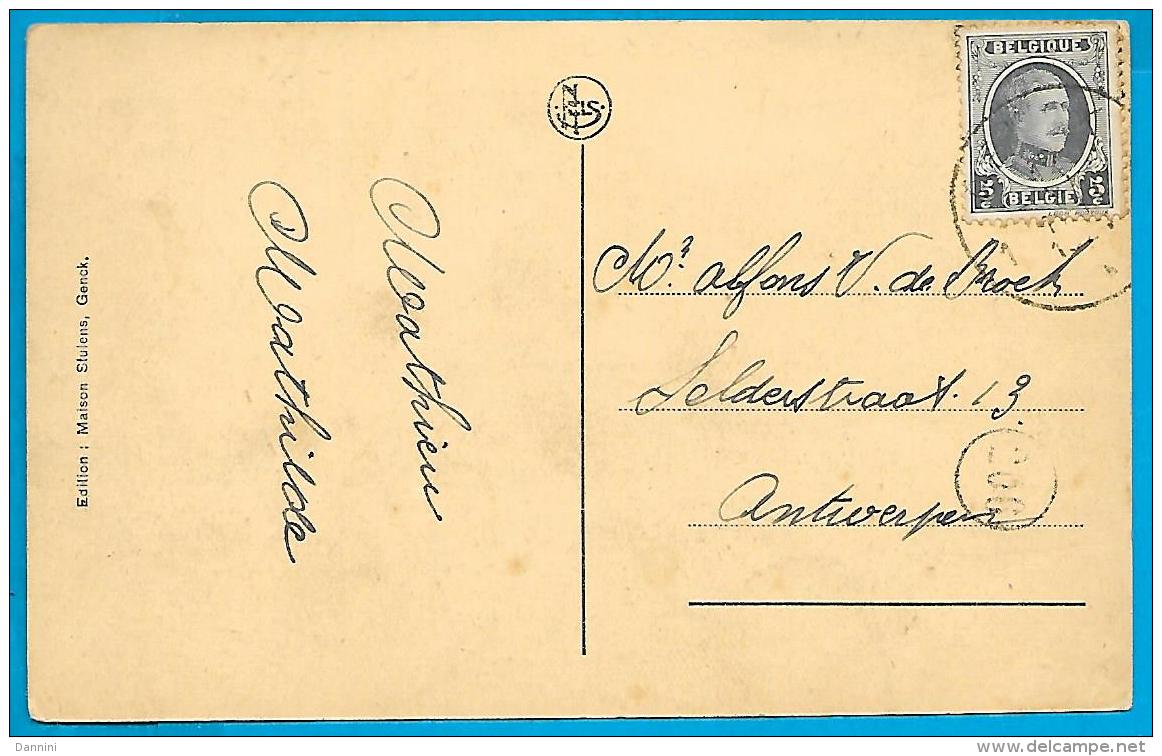 BELGIQUE
5c 5c
BELGIË
NELS
Mr. Alfons V. de Broeck
Selderstraat. 13.
Antwerpen
Mathieu
Mathilde
Edition : Maison Stulens, Genck.
Dannini
www.delcampe.net